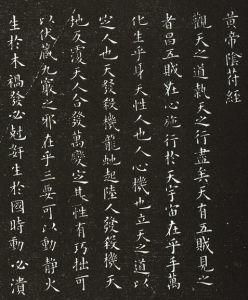 黃帝陰符經
觀天之道執天之行盡矣天有五賊見之
者昌五賊在心施行於天宇宙在乎手萬
化生乎身天性人也人心機也立天之道以
定人也天發殺機龍虵起陸人發殺機天
地反覆天人合發萬變定基性有巧拙可
以伏藏九竅之邪在乎三要可以動靜火
生於木禍發必尅奸生於國時動必潰